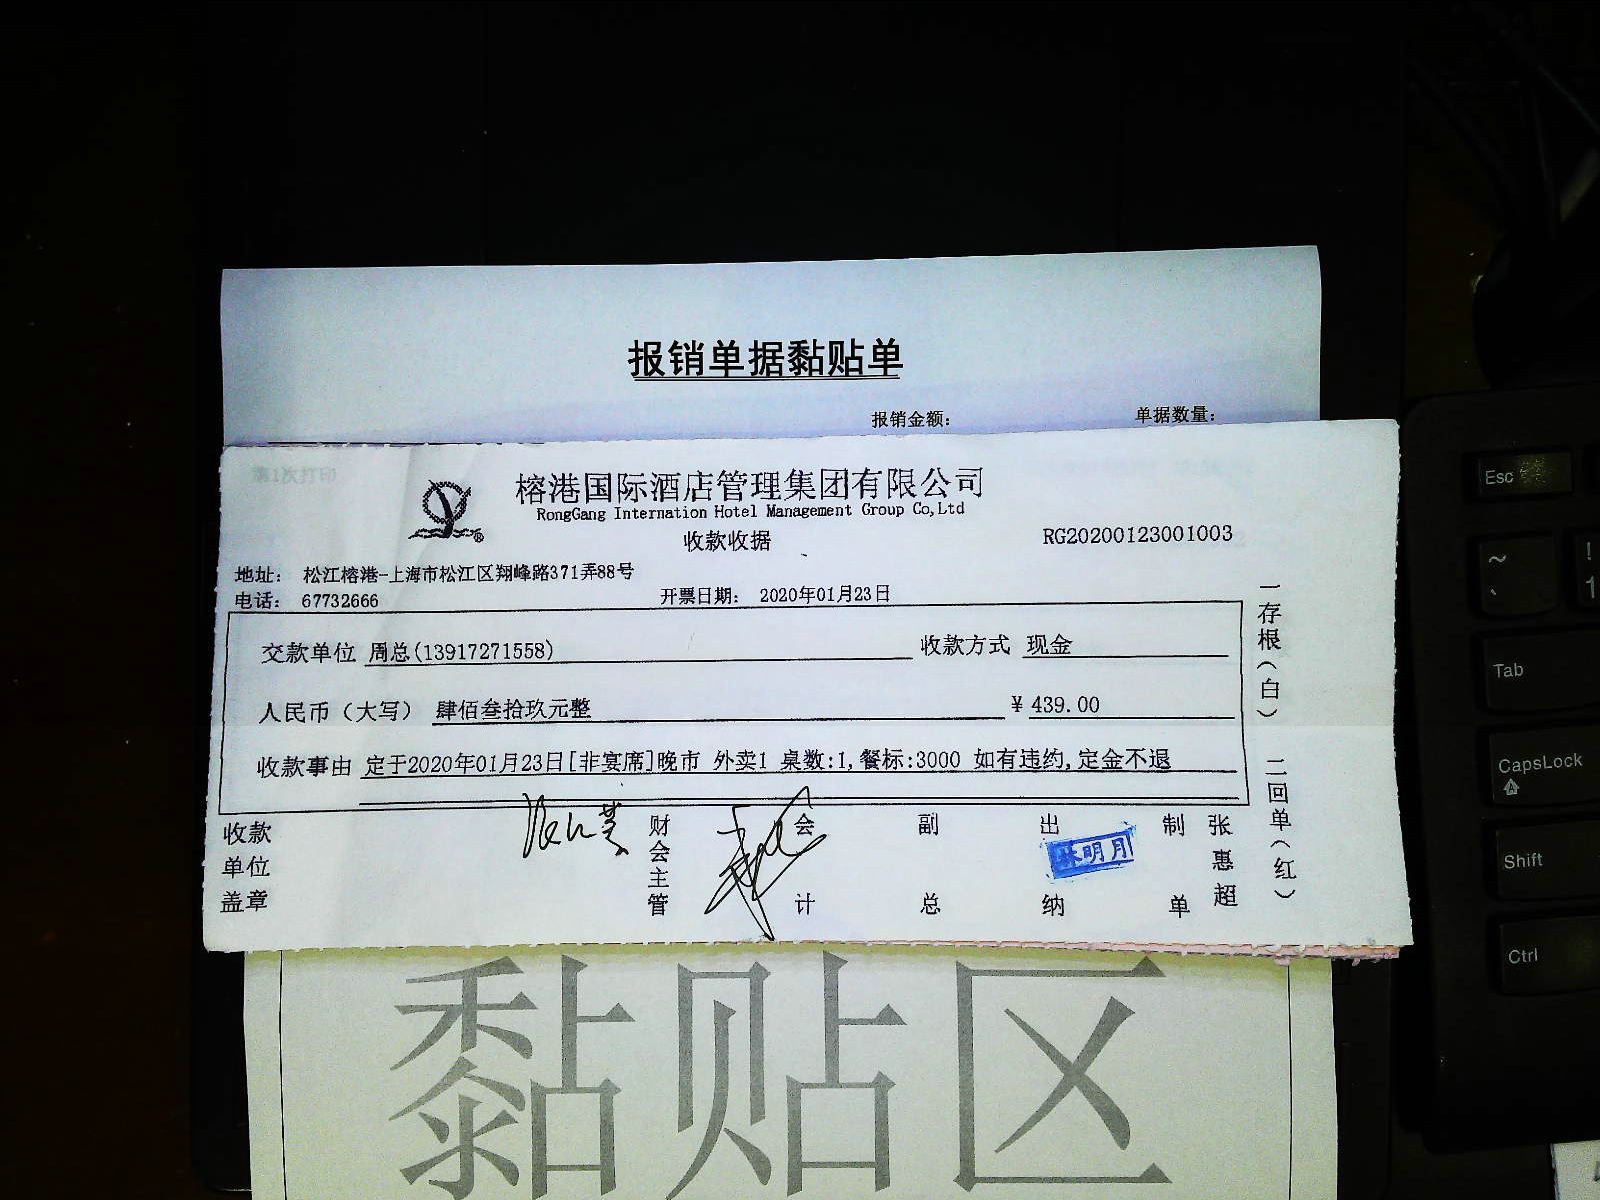 报销单据黏贴单
报销金额： 单据数量：
第1次打印
榕港国际酒店管理集团有限公司
RongGang Internation Hotel Management Group Co,Ltd
收款收据 RG20200123001003
地址： 松江榕港-上海市松江区翔峰路371弄88号
电话： 67732666 开票日期： 2020年01月23日
交款单位 周总(13917271558) 收款方式 现金
人民币（大写） 肆佰叁拾玖元整 ¥ 439.00
收款事由 定于2020年01月23日[非宴席]晚市 外卖1 桌数:1,餐标:3000 如有违约,定金不退
收款单位盖章 财会主管 会计 副总 出纳 林明月 制单 张惠超
一存根（白） 二回单（红）
黏贴区
Esc
~
`
!
1
Tab
CapsLock
Shift
Ctrl